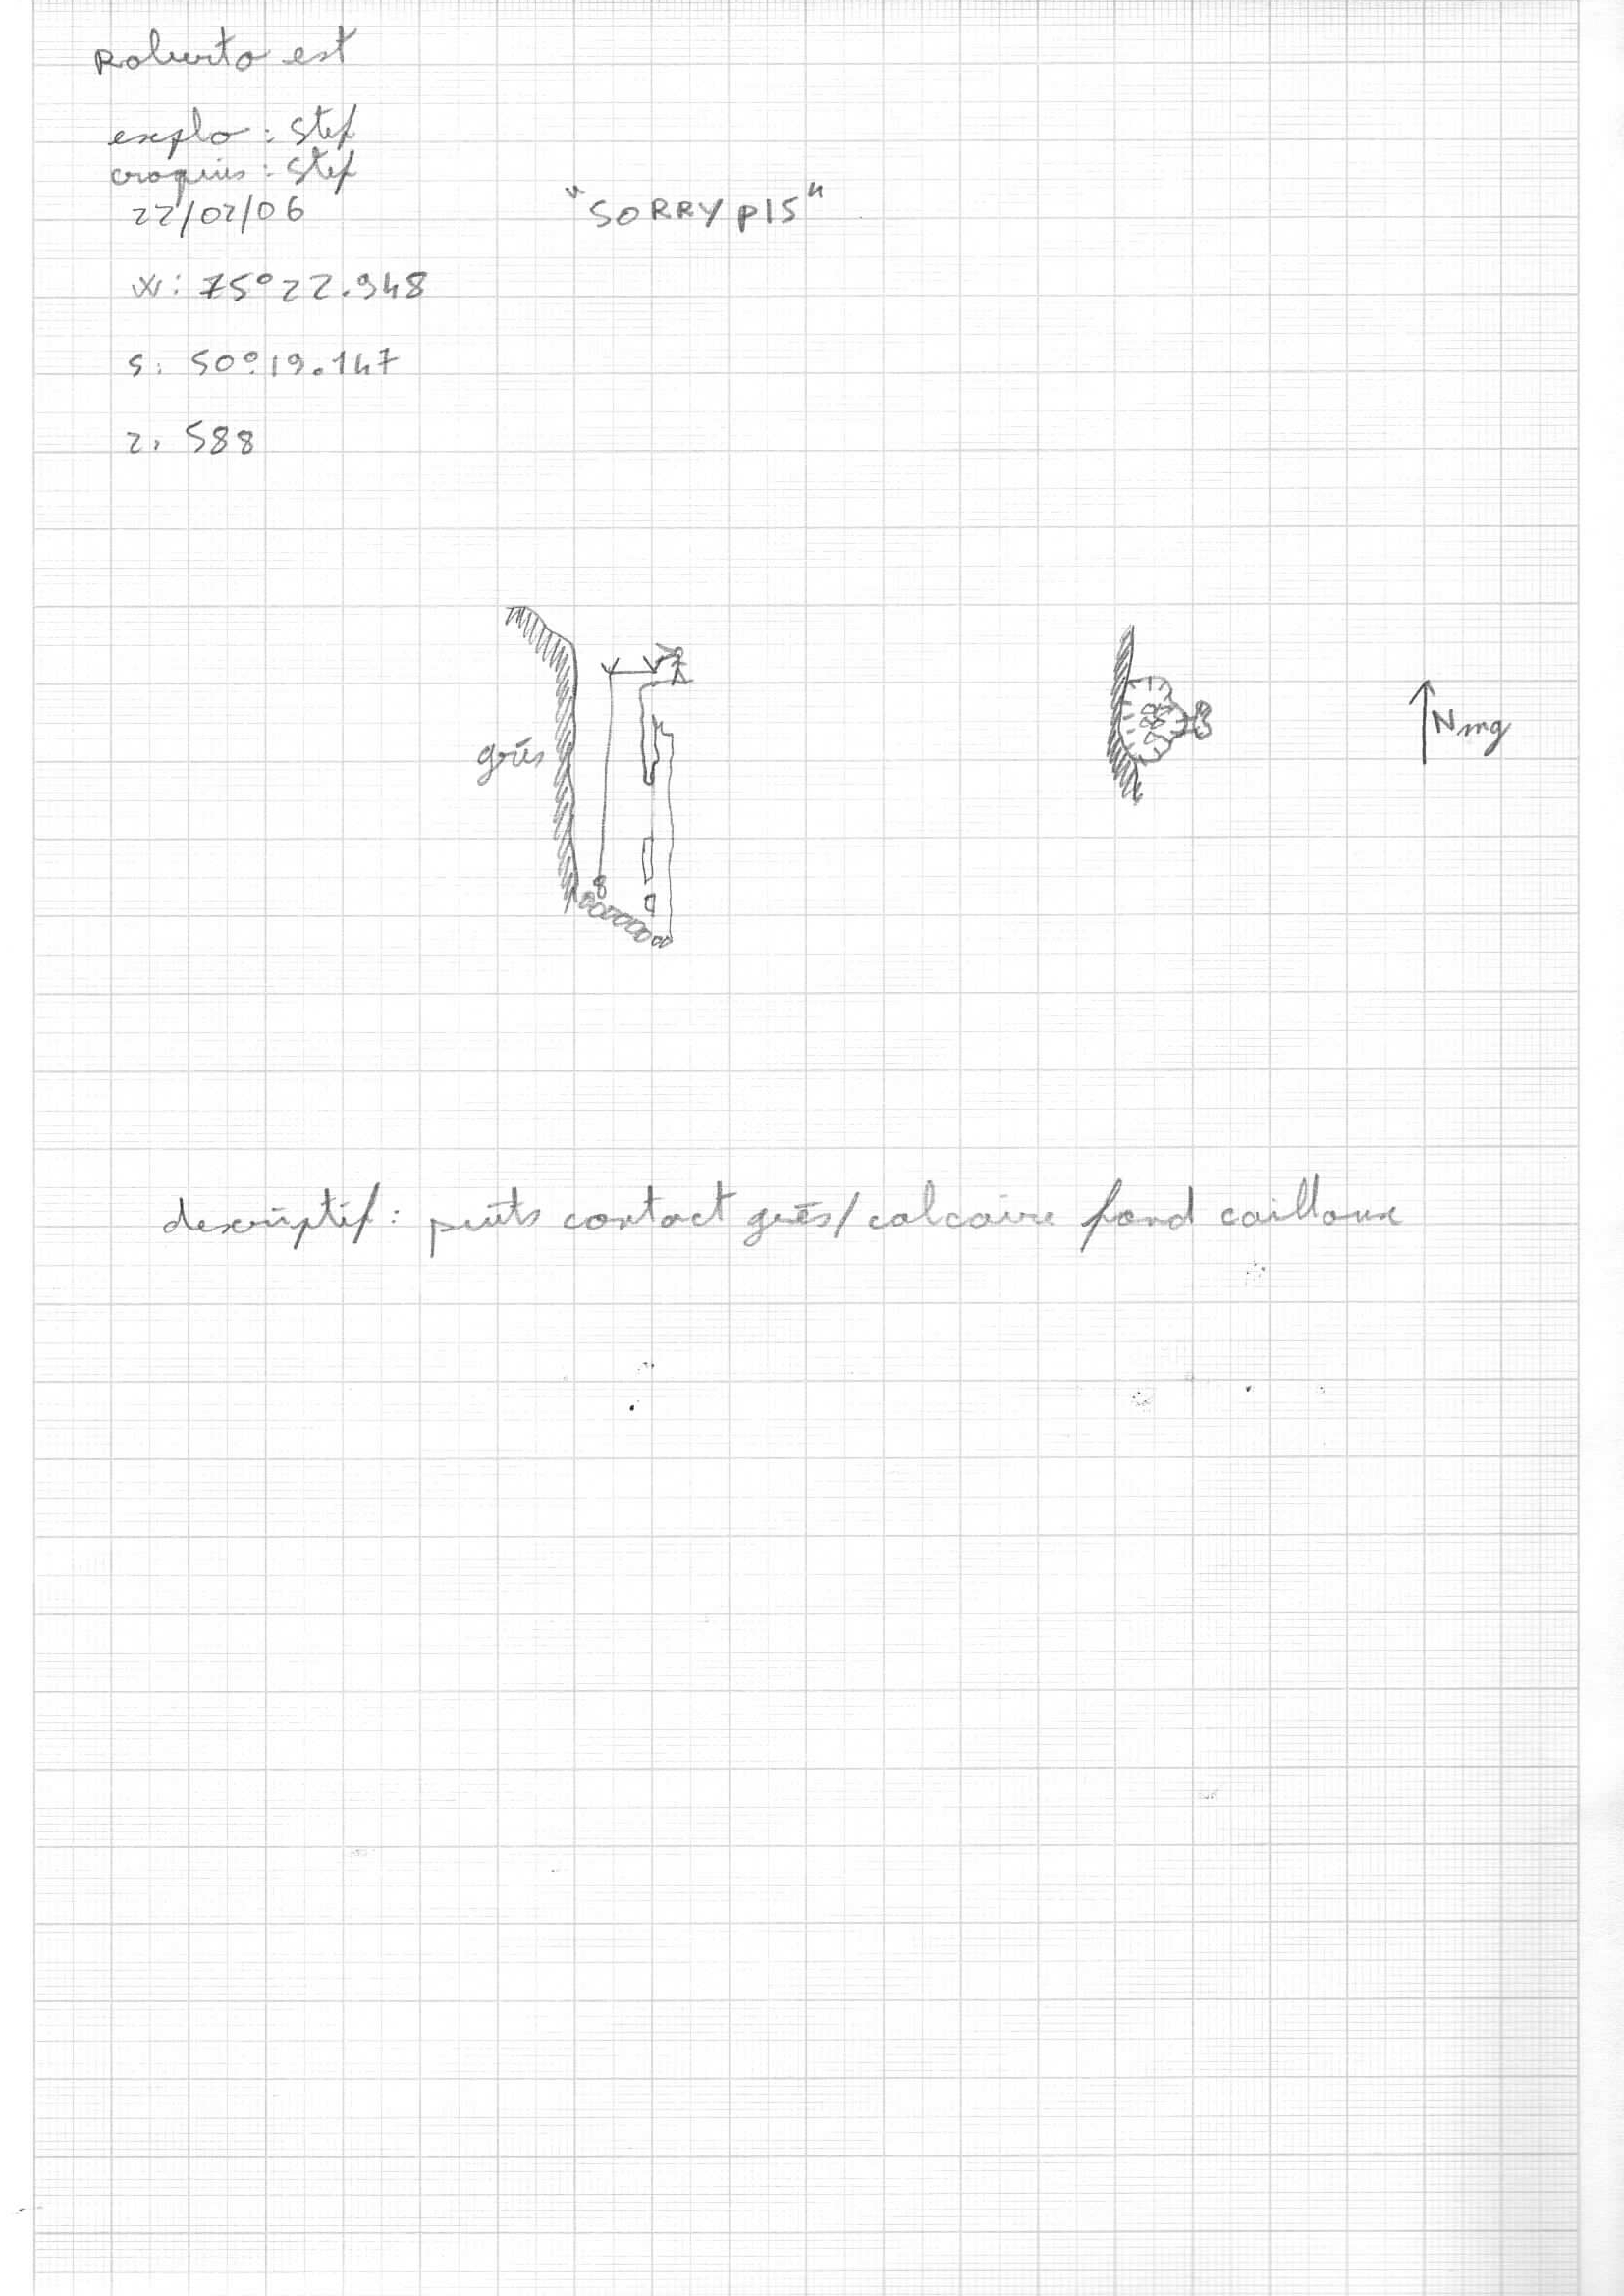 Roberto est
explo : Stef
croquis : Stef
22/02/06
"SORRY P15"
W: 75°22.948
S: 50°19.147
Z: 588
grès
Nmg
descriptif : puits contact grès/calcaire fond cailloux